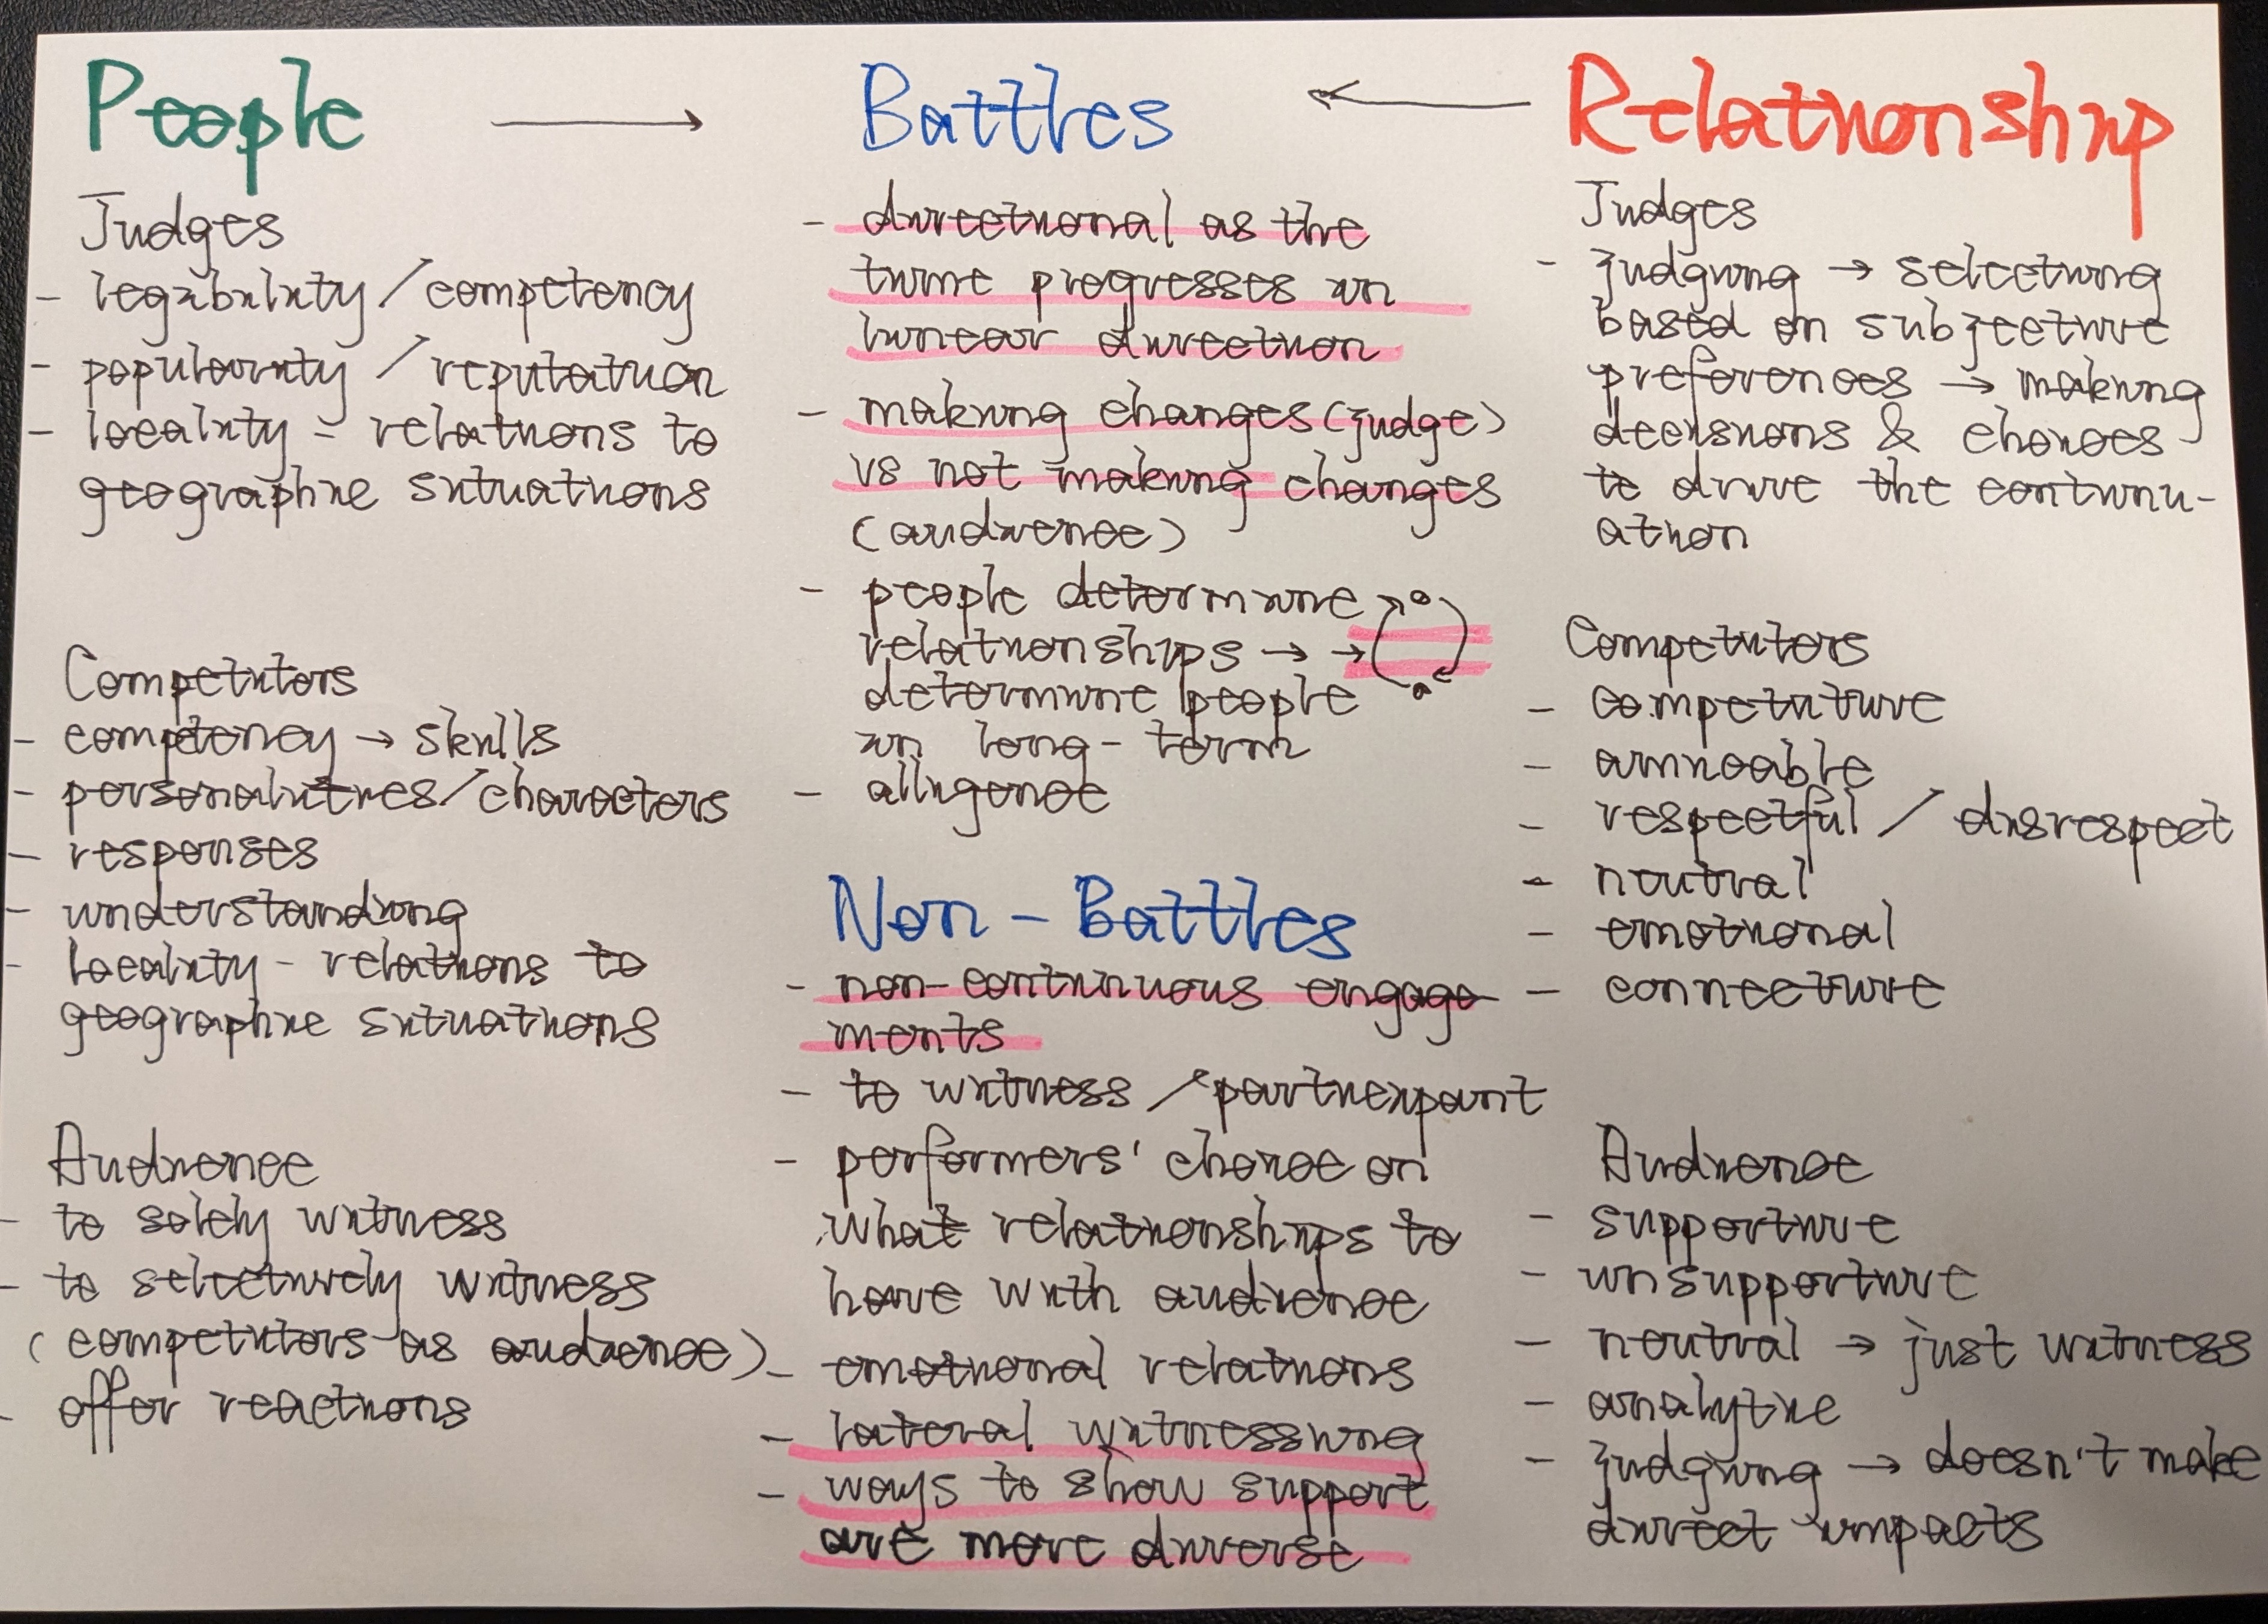 People
Judges
- legibility / competency
- popularity / reputation
- locality - relations to
geographic situations
Competitors
- competency → skills
- personalities/characters
- responses
- understanding
- locality - relations to
geographic situations
Audience
- to solely witness
- to selectively witness
(competitors as audience)
- offer reactions
Battles
- directional as the
time progresses in
linear direction
- making changes (judge)
vs not making changes
(audience)
- people determine
relationships → →
determine people
in long-term
- alligence
Non-Battles
- non-continuous engage-
ments
- to witness / participant
- performers' choice on
what relationships to
have with audience
- emotional relations
- lateral witnessing
- ways to show support
are more diverse
Relationship
Judges
- judging → selecting
based on subjective
preferences → making
decisions & choices
to drive the continu-
ation
Competitors
- competitive
- amicable
- respectful / disrespect
- neutral
- emotional
- connective
Audience
- supportive
- unsupportive
- neutral → just witness
- analytic
- judging → doesn't make
direct impacts